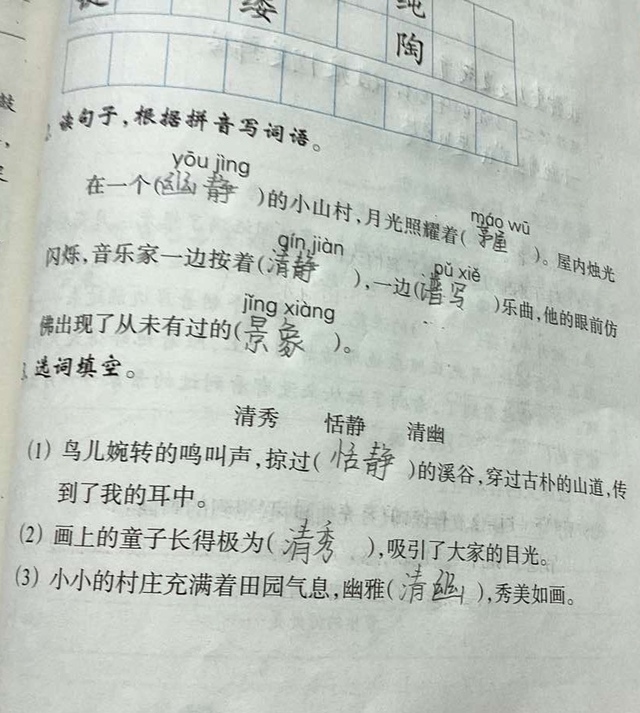 绥 纯
陶
读句子，根据拼音写词语。
yōu jìng
在一个(幽静)的小山村，月光照耀着(茅屋)。屋内烛光
máo wū
qín jiàn
闪烁，音乐家一边按着(清静)，一边(谱写)乐曲，他的眼前仿
pǔ xiě
jǐng xiàng
佛出现了从未有过的(景象)。
选词填空。
清秀 恬静 清幽
(1) 鸟儿婉转的鸣叫声，掠过(恬静)的溪谷，穿过古朴的山道，传
到了我的耳中。
(2) 画上的童子长得极为(清秀)，吸引了大家的目光。
(3) 小小的村庄充满着田园气息，幽雅(清幽)，秀美如画。